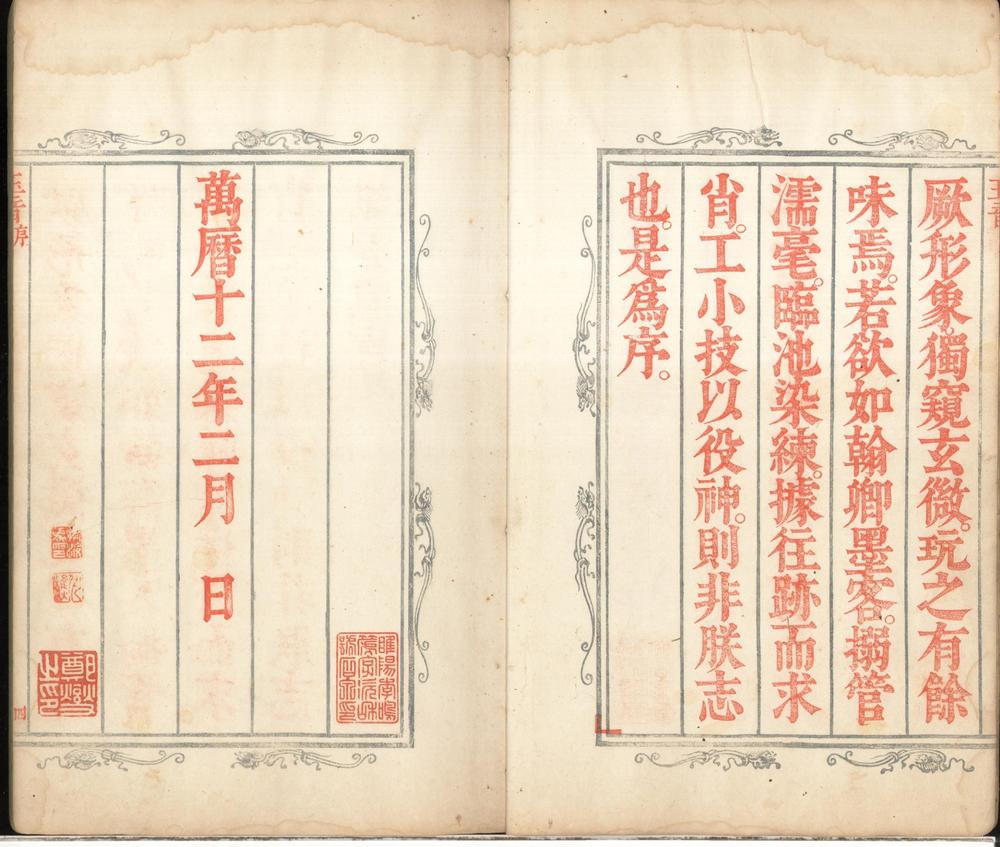 厥形象獨窺玄微。玩之有餘
味焉。若欲如翰卿墨客。搦管
濡毫。臨池染練。據往跡而求
肖。工小技以役神。則非朕志
也。是爲序。
萬曆十二年二月 日
四